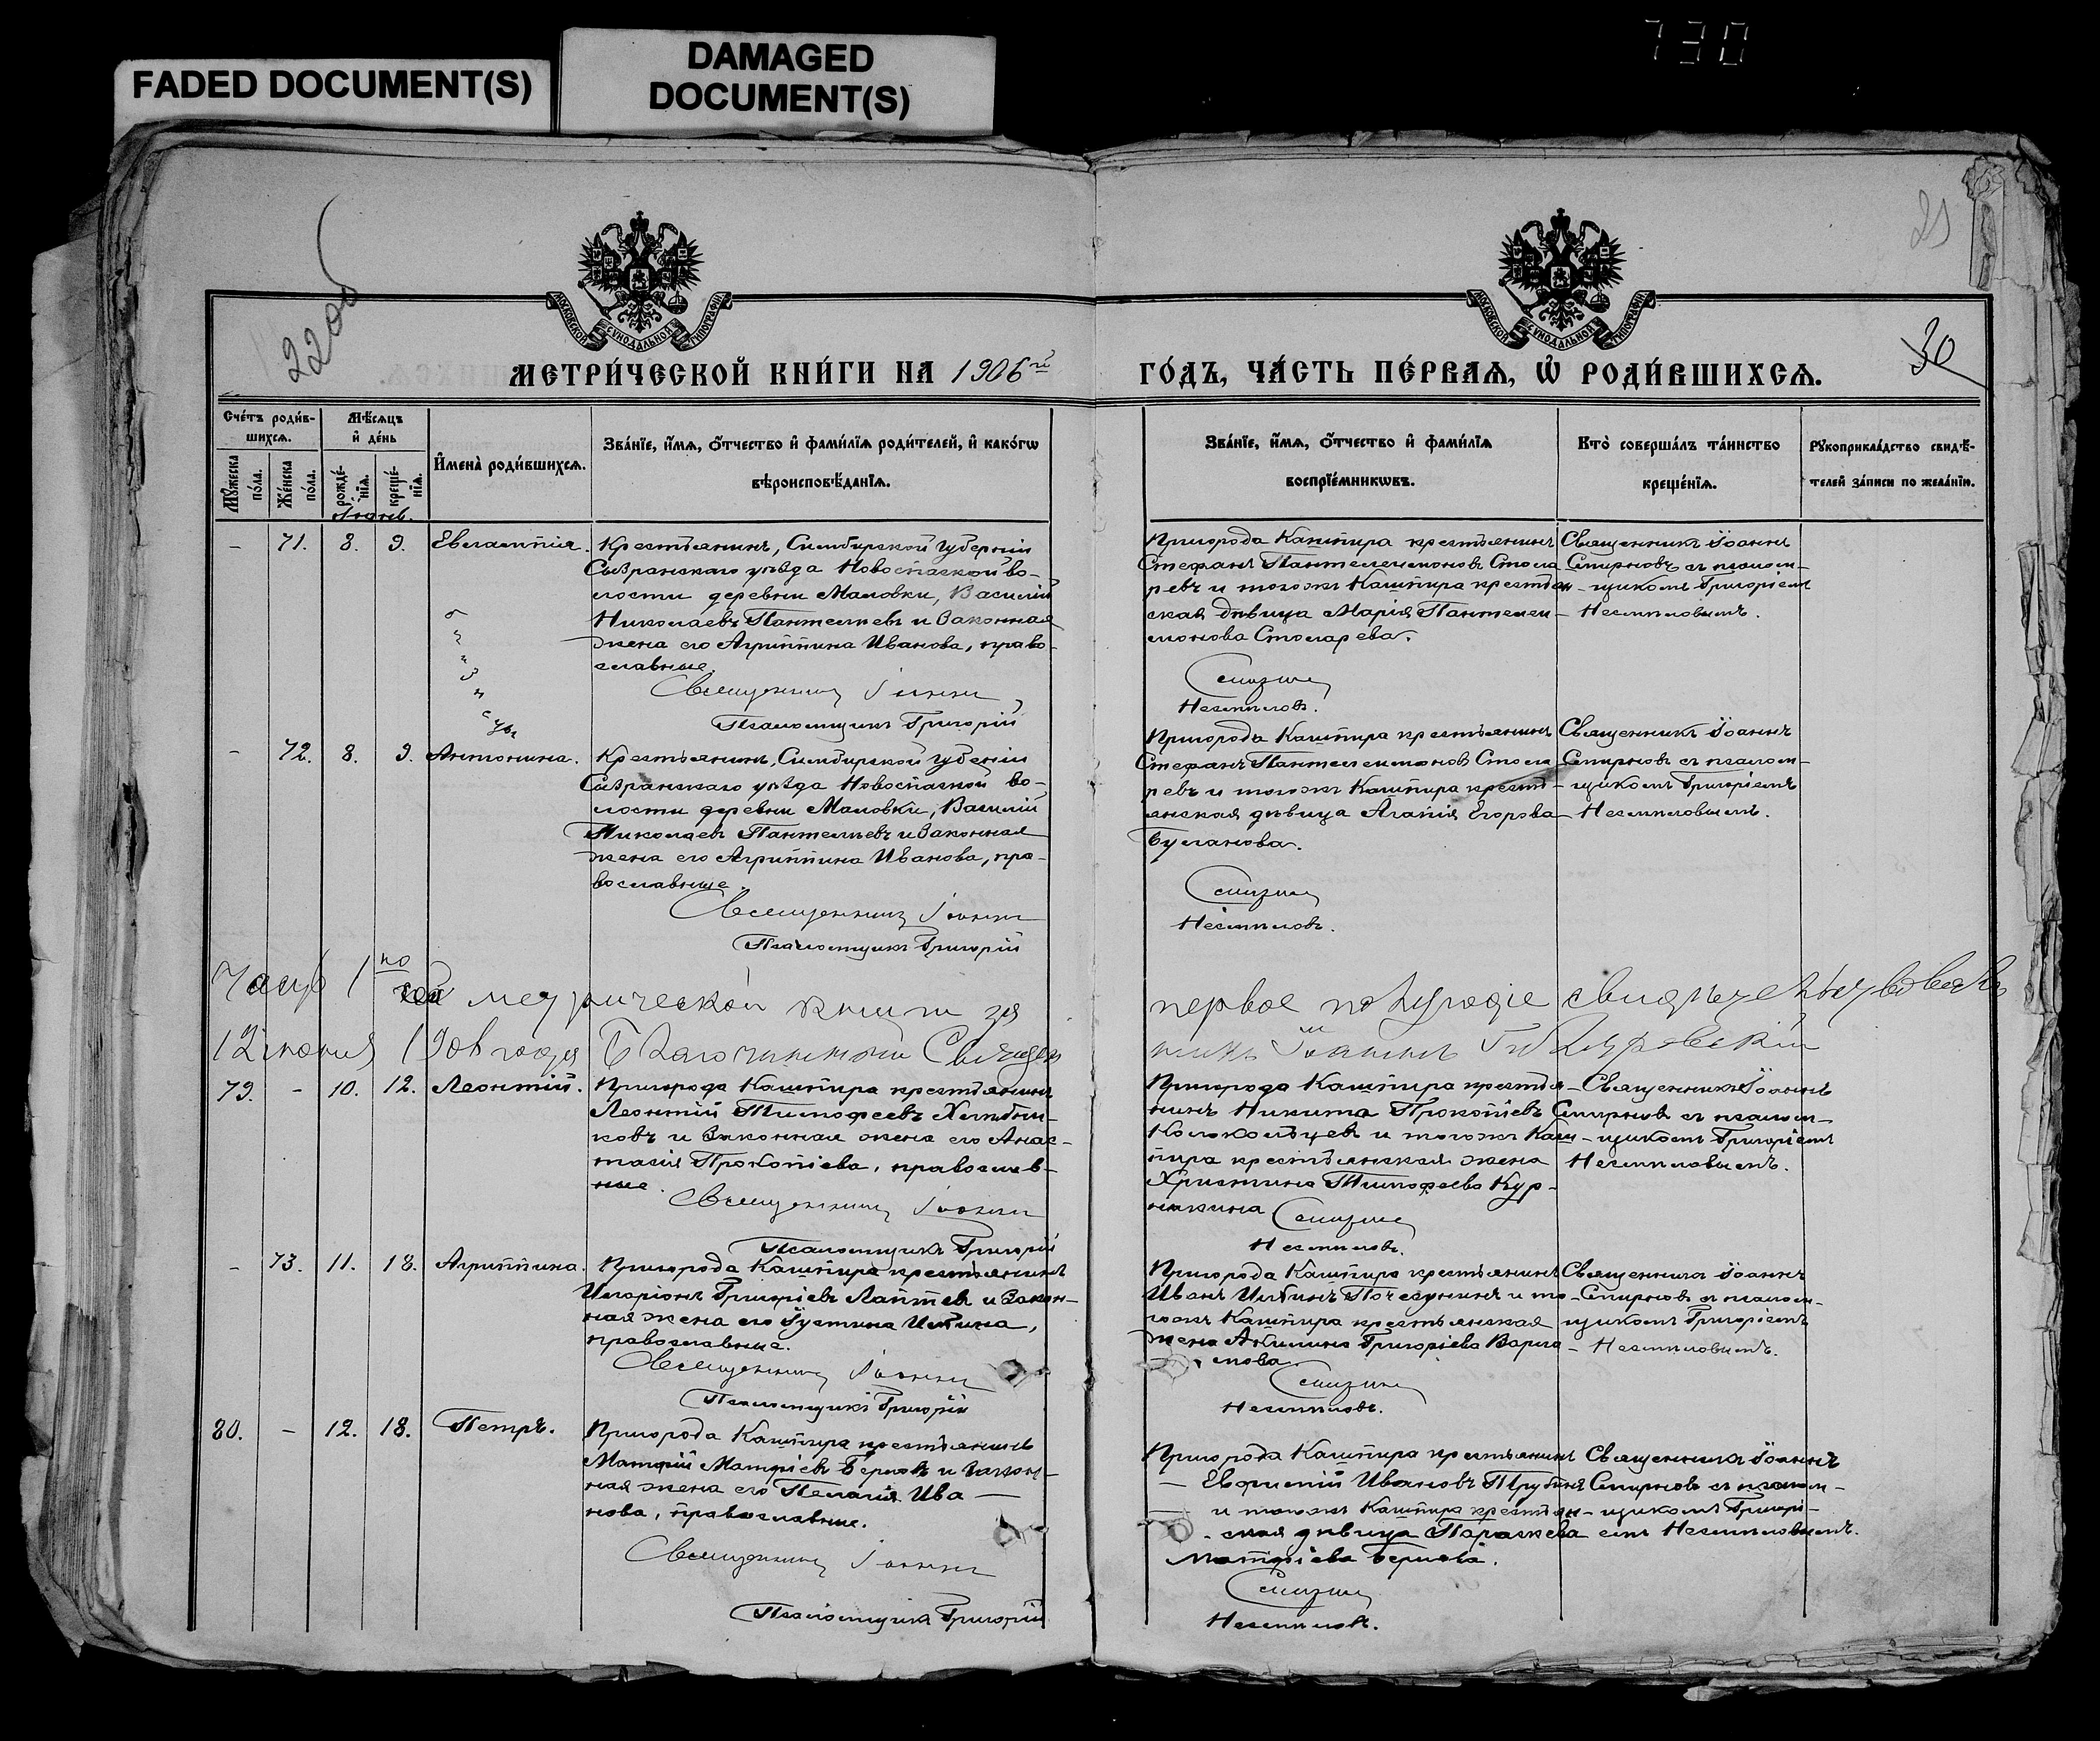 730
FADED DOCUMENT(S)
DAMAGED
DOCUMENT(S)
21
22об
30
МОСКОВСКОЙ СУНОДАЛЬНОЙ ТИПОГРАФІИ
МОСКОВСКОЙ СУНОДАЛЬНОЙ ТИПОГРАФІИ
МЕТРИ́ЧЕСКОЙ КНИ́ГИ НА 1906й
ГО́ДЪ, ЧА́СТЬ ПЕ́РВАѦ, Ѡ РОДИ́ВШИХСѦ.
Сче́тъ роди́в-
шихсѧ.
Мꙋ́жеска по́ла.
Же́нска по́ла.
Мѣ́сѧцъ
и де́нь
рожде́-
нїѧ.
креще́-
нїѧ.
Имена̀ роди́вшихсѧ.
Зва́нїе, и́мѧ, о́тчество и фами́лїѧ роди́телей, и како́гѡ
вѣроисповѣ́данїѧ.
Зва́нїе, и́мѧ, о́тчество и фами́лїѧ
воспрїе́мникѡвъ.
Кто̀ соверша́лъ та́инство
креще́нїѧ.
Рꙋкоприкла́дство свидѣ́-
телей за́писи по жела́нїю.
Іюнь.
- 71. 8. 9. Евлампія.
Крестьянинъ, Симбирской губерніи
Сызранскаго уѣзда Новоспаской во-
лости деревни Маловки, Василій
Николаевъ Пантелѣевъ и законная
жена его Агриппина Иванова, право-
славные.
Священникъ Іоаннъ
Псаломщикъ Григорій
Пригорода Кашпира крестьянинъ
Стефанъ Пантелеимоновъ Столя-
ревъ и тогожъ Кашпира крестьян-
ская дѣвица Марія Пантелеи-
монова Столярева.
Смирновъ
Несмѣловъ.
Священникъ Іоаннъ
Смирновъ съ псалом-
щикомъ Григоріемъ
Несмѣловымъ.
- 72. 8. 9. Антонина.
Крестьянинъ, Симбирской губерніи
Сызранскаго уѣзда Новоспаской во-
лости деревни Маловки, Василій
Николаевъ Пантелѣевъ и законная
жена его Агриппина Иванова, пра-
вославные.
Священникъ Іоаннъ
Псаломщикъ Григорій
Пригорода Кашпира крестьянинъ
Стефанъ Пантелеимоновъ Столя-
ревъ и тогожъ Кашпира кресть-
янская дѣвица Агапія Егорова
Буланова.
Смирновъ
Несмѣловъ.
Священникъ Іоаннъ
Смирновъ съ псалом-
щикомъ Григоріемъ
Несмѣловымъ.
Часть 1 по сей метрической книги за первое полугодіе свидѣтельствовалъ
12 іюня 1906 года Благочинный Священникъ Іоаннъ
79. - 10. 12. Леонтій.
Пригорода Кашпира крестьянинъ
Леонтій Тимофеевъ Хлѣбни-
ковъ и законная жена его Анас-
тасія Прокопіева, православ-
ные.
Священникъ Іоаннъ
Псаломщикъ Григорій
Пригорода Кашпира крестья-
нинъ Никита Прокопіевъ
Колокольцевъ и тогожъ Каш-
пира крестьянская жена
Христина Тимофеева Кур-
накина
Смирновъ
Несмѣловъ.
Священникъ Іоаннъ
Смирновъ съ псалом-
щикомъ Григоріемъ
Несмѣловымъ.
- 73. 11. 18. Агриппина.
Пригорода Кашпира крестьянинъ
Иларіонъ Григоріевъ Лаптевъ и закон-
ная жена его Іустина Ильина,
православные.
Священникъ Іоаннъ
Псаломщикъ Григорій
Пригорода Кашпира крестьянинъ
Иванъ Ильинъ и то-
гожъ Кашпира крестьянская
жена Акилина Григоріева Варла-
мова.
Смирновъ
Несмѣловъ.
Священникъ Іоаннъ
Смирновъ съ псалом-
щикомъ Григоріемъ
Несмѣловымъ.
80. - 12. 18. Петръ.
Пригорода Кашпира крестьянинъ
Матфій Матфіевъ и закон-
ная жена его Пелагія Ива-
нова, православные.
Священникъ Іоаннъ
Псаломщикъ Григорій
Пригорода Кашпира крестьянинъ
Евфимій Ивановъ
и тогожъ Кашпира крестьян-
ская дѣвица Параскева
Матфіева
Смирновъ
Несмѣловъ.
Священникъ Іоаннъ
Смирновъ съ псалом-
щикомъ Григорі-
емъ Несмѣловымъ.